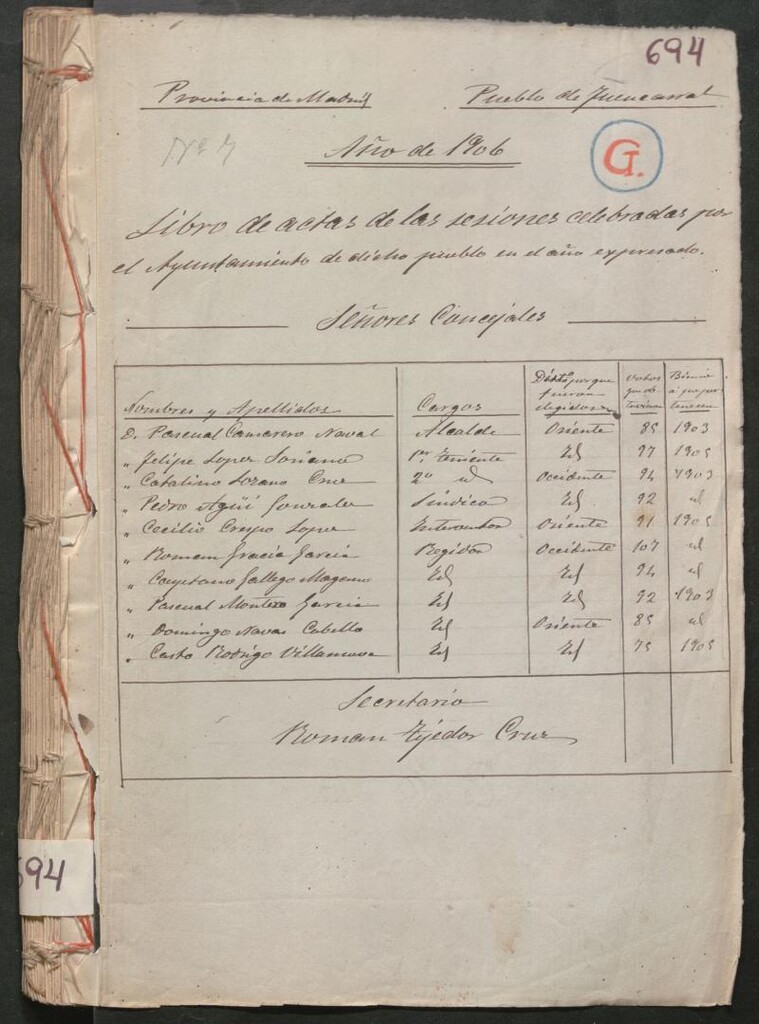 694
Provincia de Madrid Pueblo de Fuencarral
Nº 7
Año de 1906
G.
Libro de actas de las sesiones celebradas por
el Ayuntamiento de dicho pueblo en el año expresado.
Señores Concejales
Nombres y Apellidos Cargos Distº porque fueron elegidos Votos que obtuvieron Bienio á que pertenecen
D. Pascual Camarero Naval Alcalde Oriente 85 1903
" Felipe Lopez Soriano 1er Teniente Id 77 1905
" Catalino Lozano Cruz 2º id Occidente 94 1903
" Pedro Agüi Gonzalez Síndico Id 92 id
" Cecilio Crespo Lopez Interventor Oriente 91 1905
" Roman Gracia Garcia Regidor Occidente 107 id
" Cayetano Gallego Id Id 94 id
" Pascual Montero Garcia Id Id 92 1903
" Domingo Navas Cabello Id Oriente 85 id
" Casto Rodrigo Villanueva Id Id 75 1905
Secretario
Roman Tejedor Cruz
694